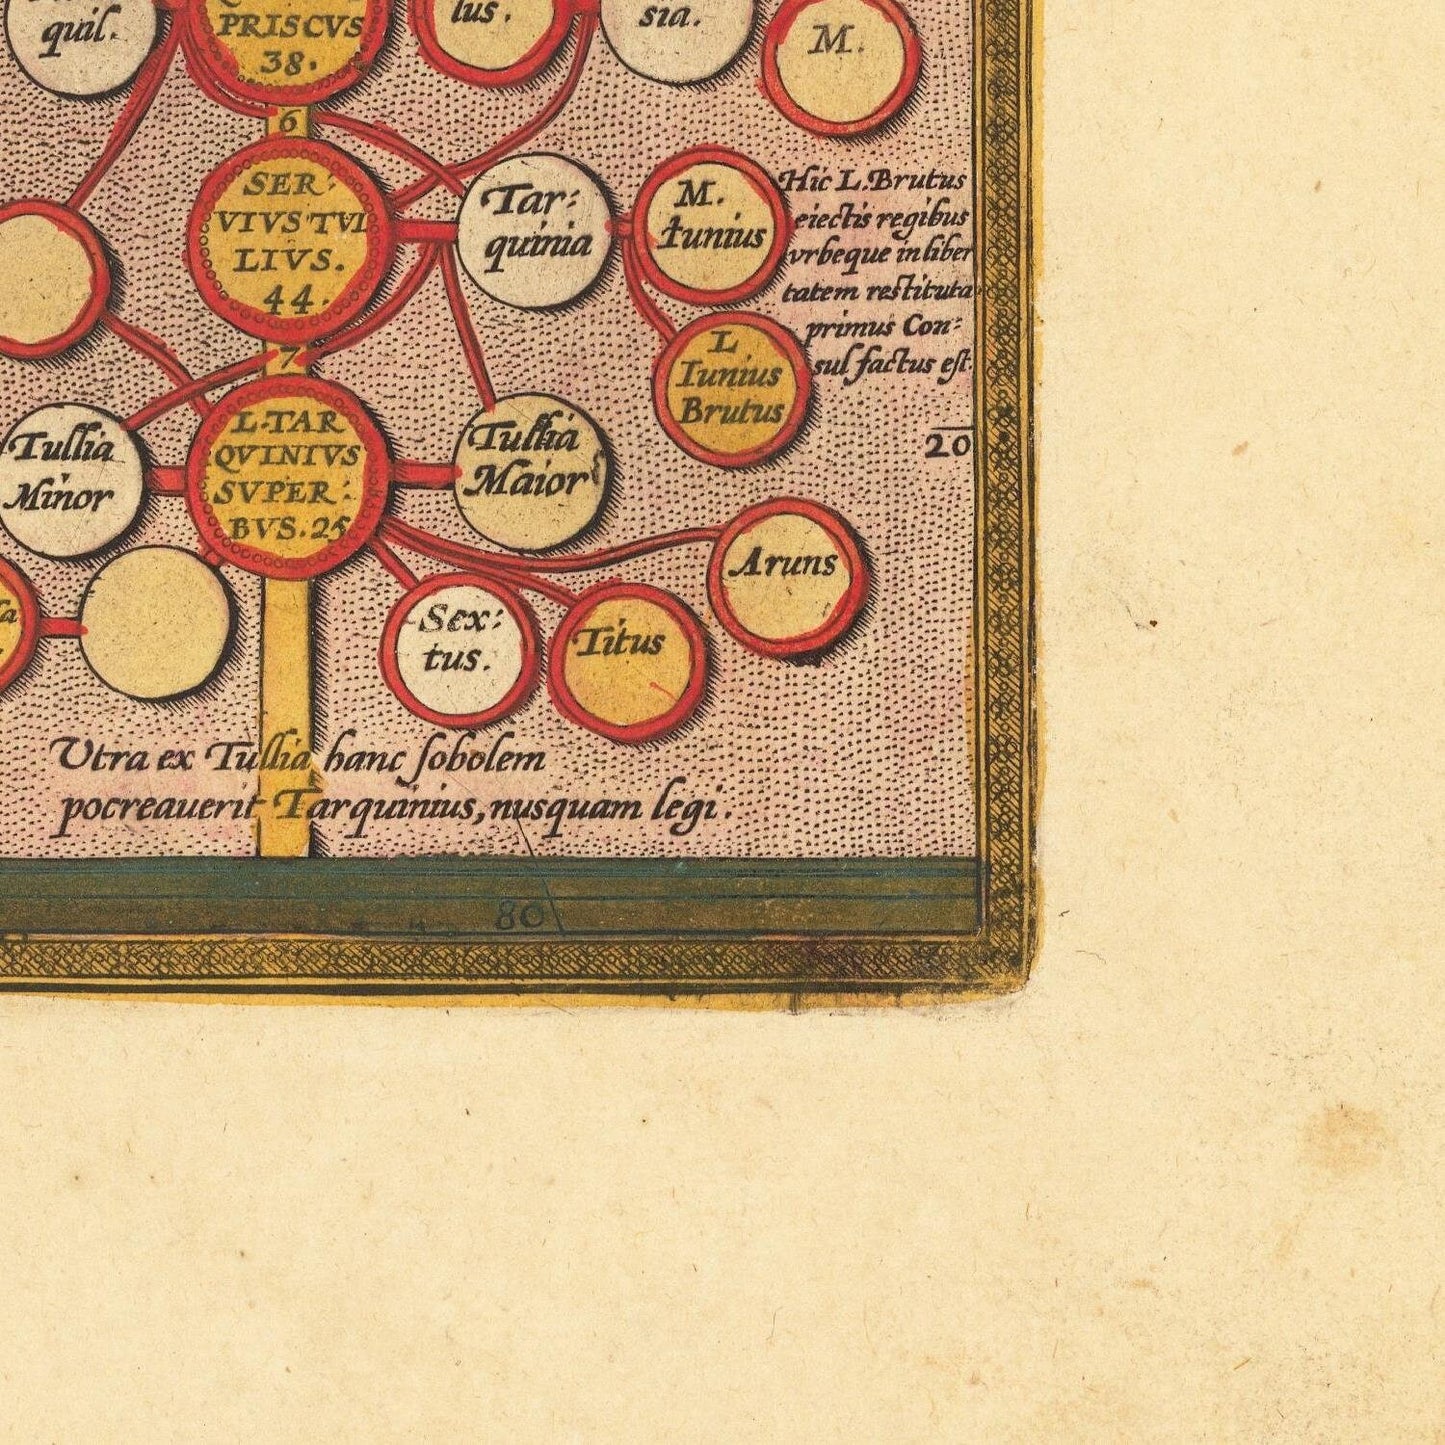 quil.
PRISCVS
38.
lus.
sia.
M.
6
SER-
VIVS TVL
LIVS.
44.
Tar-
quinia
M.
Iunius
Hic L. Brutus
eiectis regibus
vrbeque in liber
tatem restituta
primus Con-
sul factus est.
L
Iunius
Brutus
20
7
Tullia
Minor
L. TAR
QVINIVS
SVPER-
BVS. 25
Tullia
Maior
Sex-
tus.
Titus
Aruns
Utra ex Tullia hanc sobolem
pocreauerit Tarquinius, nusquam legi.
80